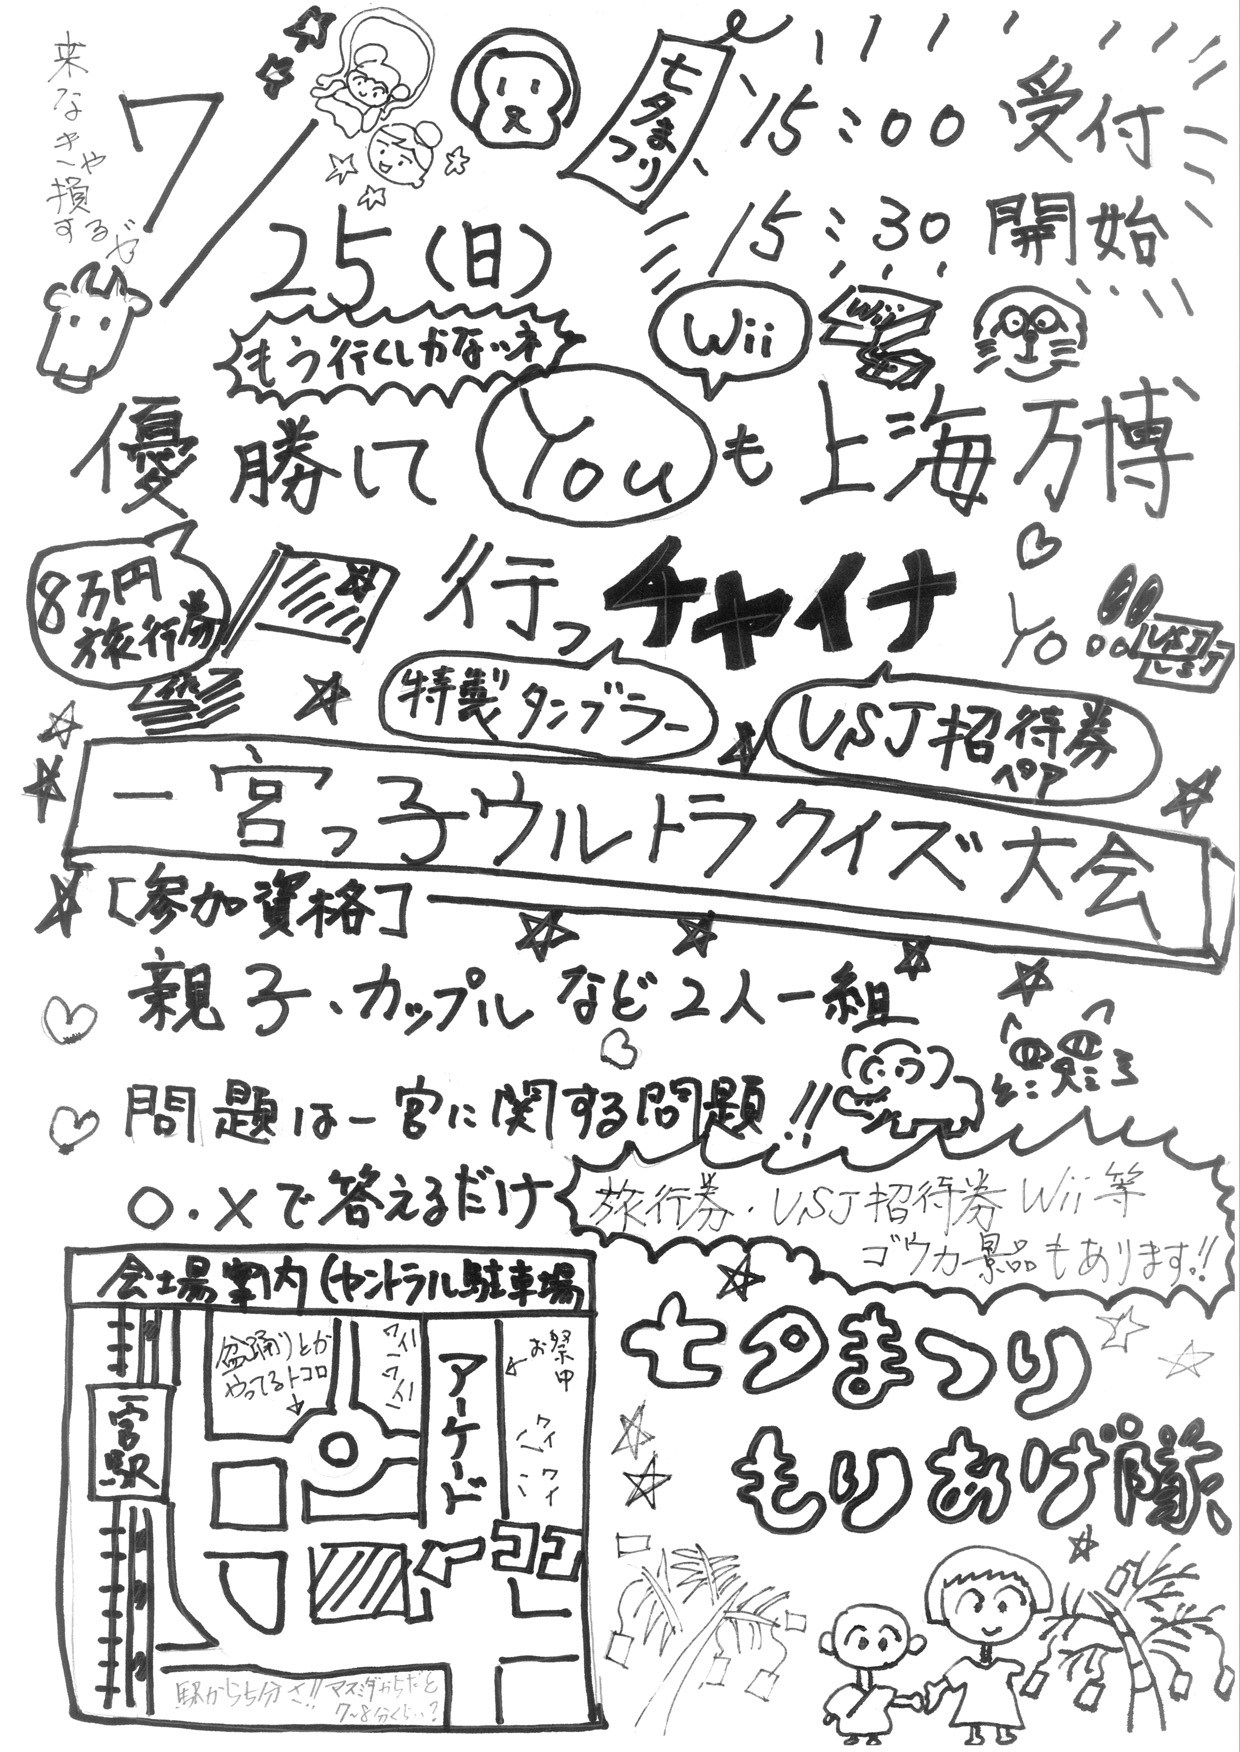 来なきゃ損するゼ
7/25(日)
七夕まつり
15:00 受付
15:30 開始
もう行くしかなッネ
Wii
Wii
優勝して You も 上海万博
8万円
旅行券
行っチャイナ
Yo
USJ
特製タンブラー
USJ招待券
ペア
一宮っ子ウルトラクイズ大会
[参加資格]
親子、カップルなど2人一組
問題は一宮に関する問題!!
○・×で答えるだけ
旅行券・USJ招待券 Wii等
ゴウカ景品もあります!!
会場案内(セントラル駐車場
盆踊りとか
やってるトコロ
ワイ!
ワイ!
アーケード
お祭中
ワイ
ワイ
一宮駅
ココ
駅から5分さ!!マスミダからだと
7~8分くらい?
七夕まつり
もりあげ隊